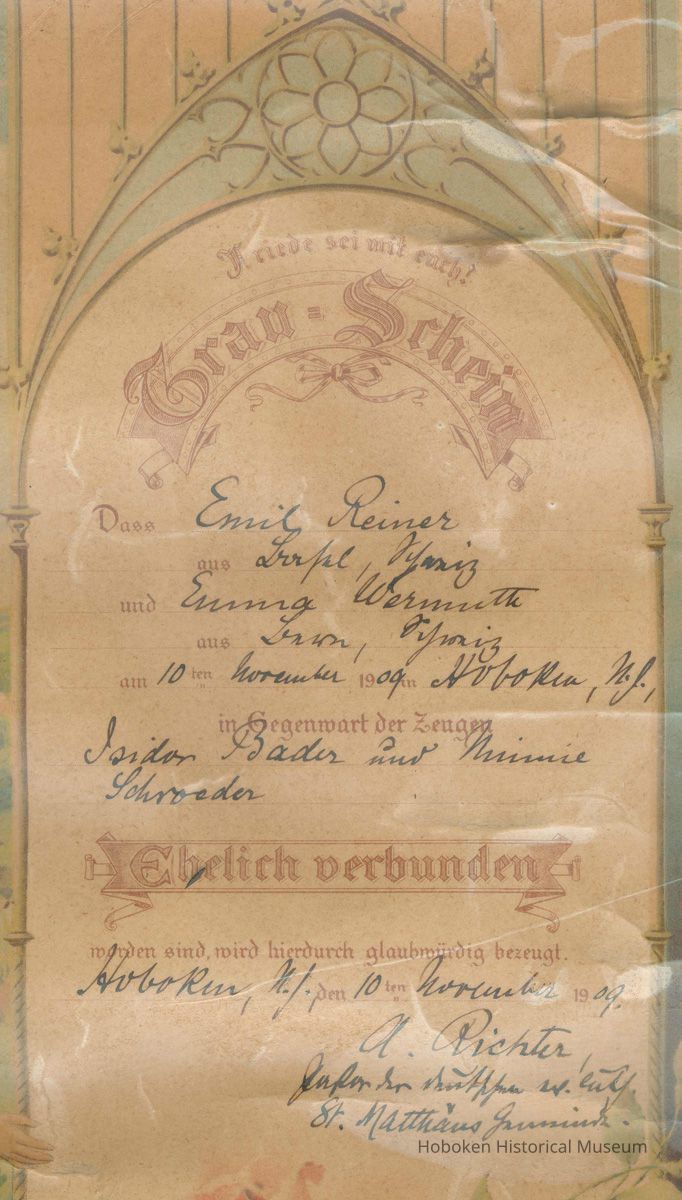 Friede sei mit euch!
Trau=Schein
Dass Emil Reiner
aus Basel, Schweiz
und Emma Wermuth
aus Bern, Schweiz
am 10ten November 1909 in Hoboken, N.J.,
in Gegenwart der Zeugen
Isidor Bader und Minnie
Schroeder
Ehelich verbunden
worden sind, wird hierdurch glaubwürdig bezeugt.
Hoboken, N.J., den 10ten November 1909.
A. Richter,
Pastor der deutschen ev. luth.
St. Matthäus Gemeinde.
Hoboken Historical Museum